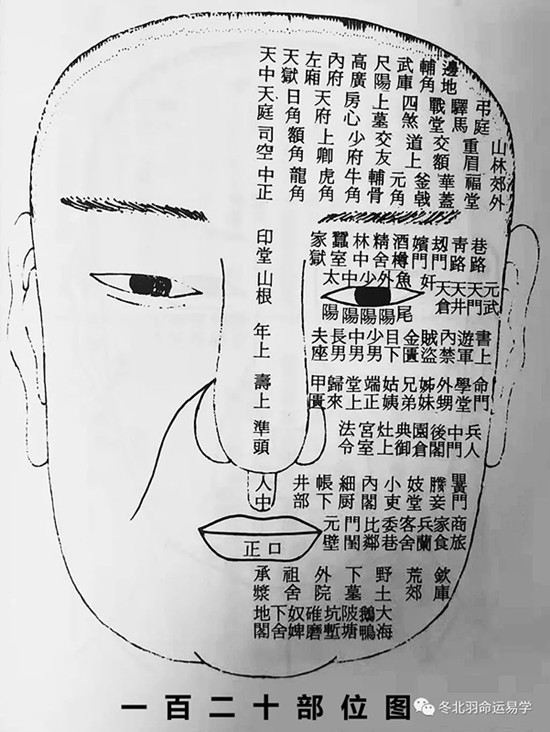 天中 天獄 左廂 內府 高廣 尺陽 武庫 輔角 邊地
天庭 日角 天府 房心 上墓 四煞 戰堂 驛馬 弔庭
司空 額角 上卿 少府 交友 道上 交額 重眉 山林
中正 龍角 虎角 牛角 輔骨 元角 釜戟 華蓋 福堂 郊外
印堂 家獄 蠶室 林中 精舍 酒樽 嬪門 刼門 青路 巷路
山根 太陽 中陽 少陽 外陽 魚尾 奸 天倉 天井 天門 元武
年上 夫座 長男 中男 少男 目下 金匱 賊盜 內禁 遊軍 書上
壽上 甲匱 歸來 堂上 端正 姑姨 兄弟 姊妹 外甥 學堂 命門
準頭 法令 宮室 灶上 典御 園倉 後閣 中門 兵人
人中 井部 帳下 細厨 內閣 小東 妓堂 媵妾 嬰門
正口 元壁 門閨 比鄰 委巷 客舍 兵蘭 家食 商旅
承漿 祖舍 外院 下墓 野土 荒郊 欽庫
地閣 下舍 奴婢 碓磨 坑塹 陂塘 鵝鴨 大海
一百二十部位图
冬北羽命运易学